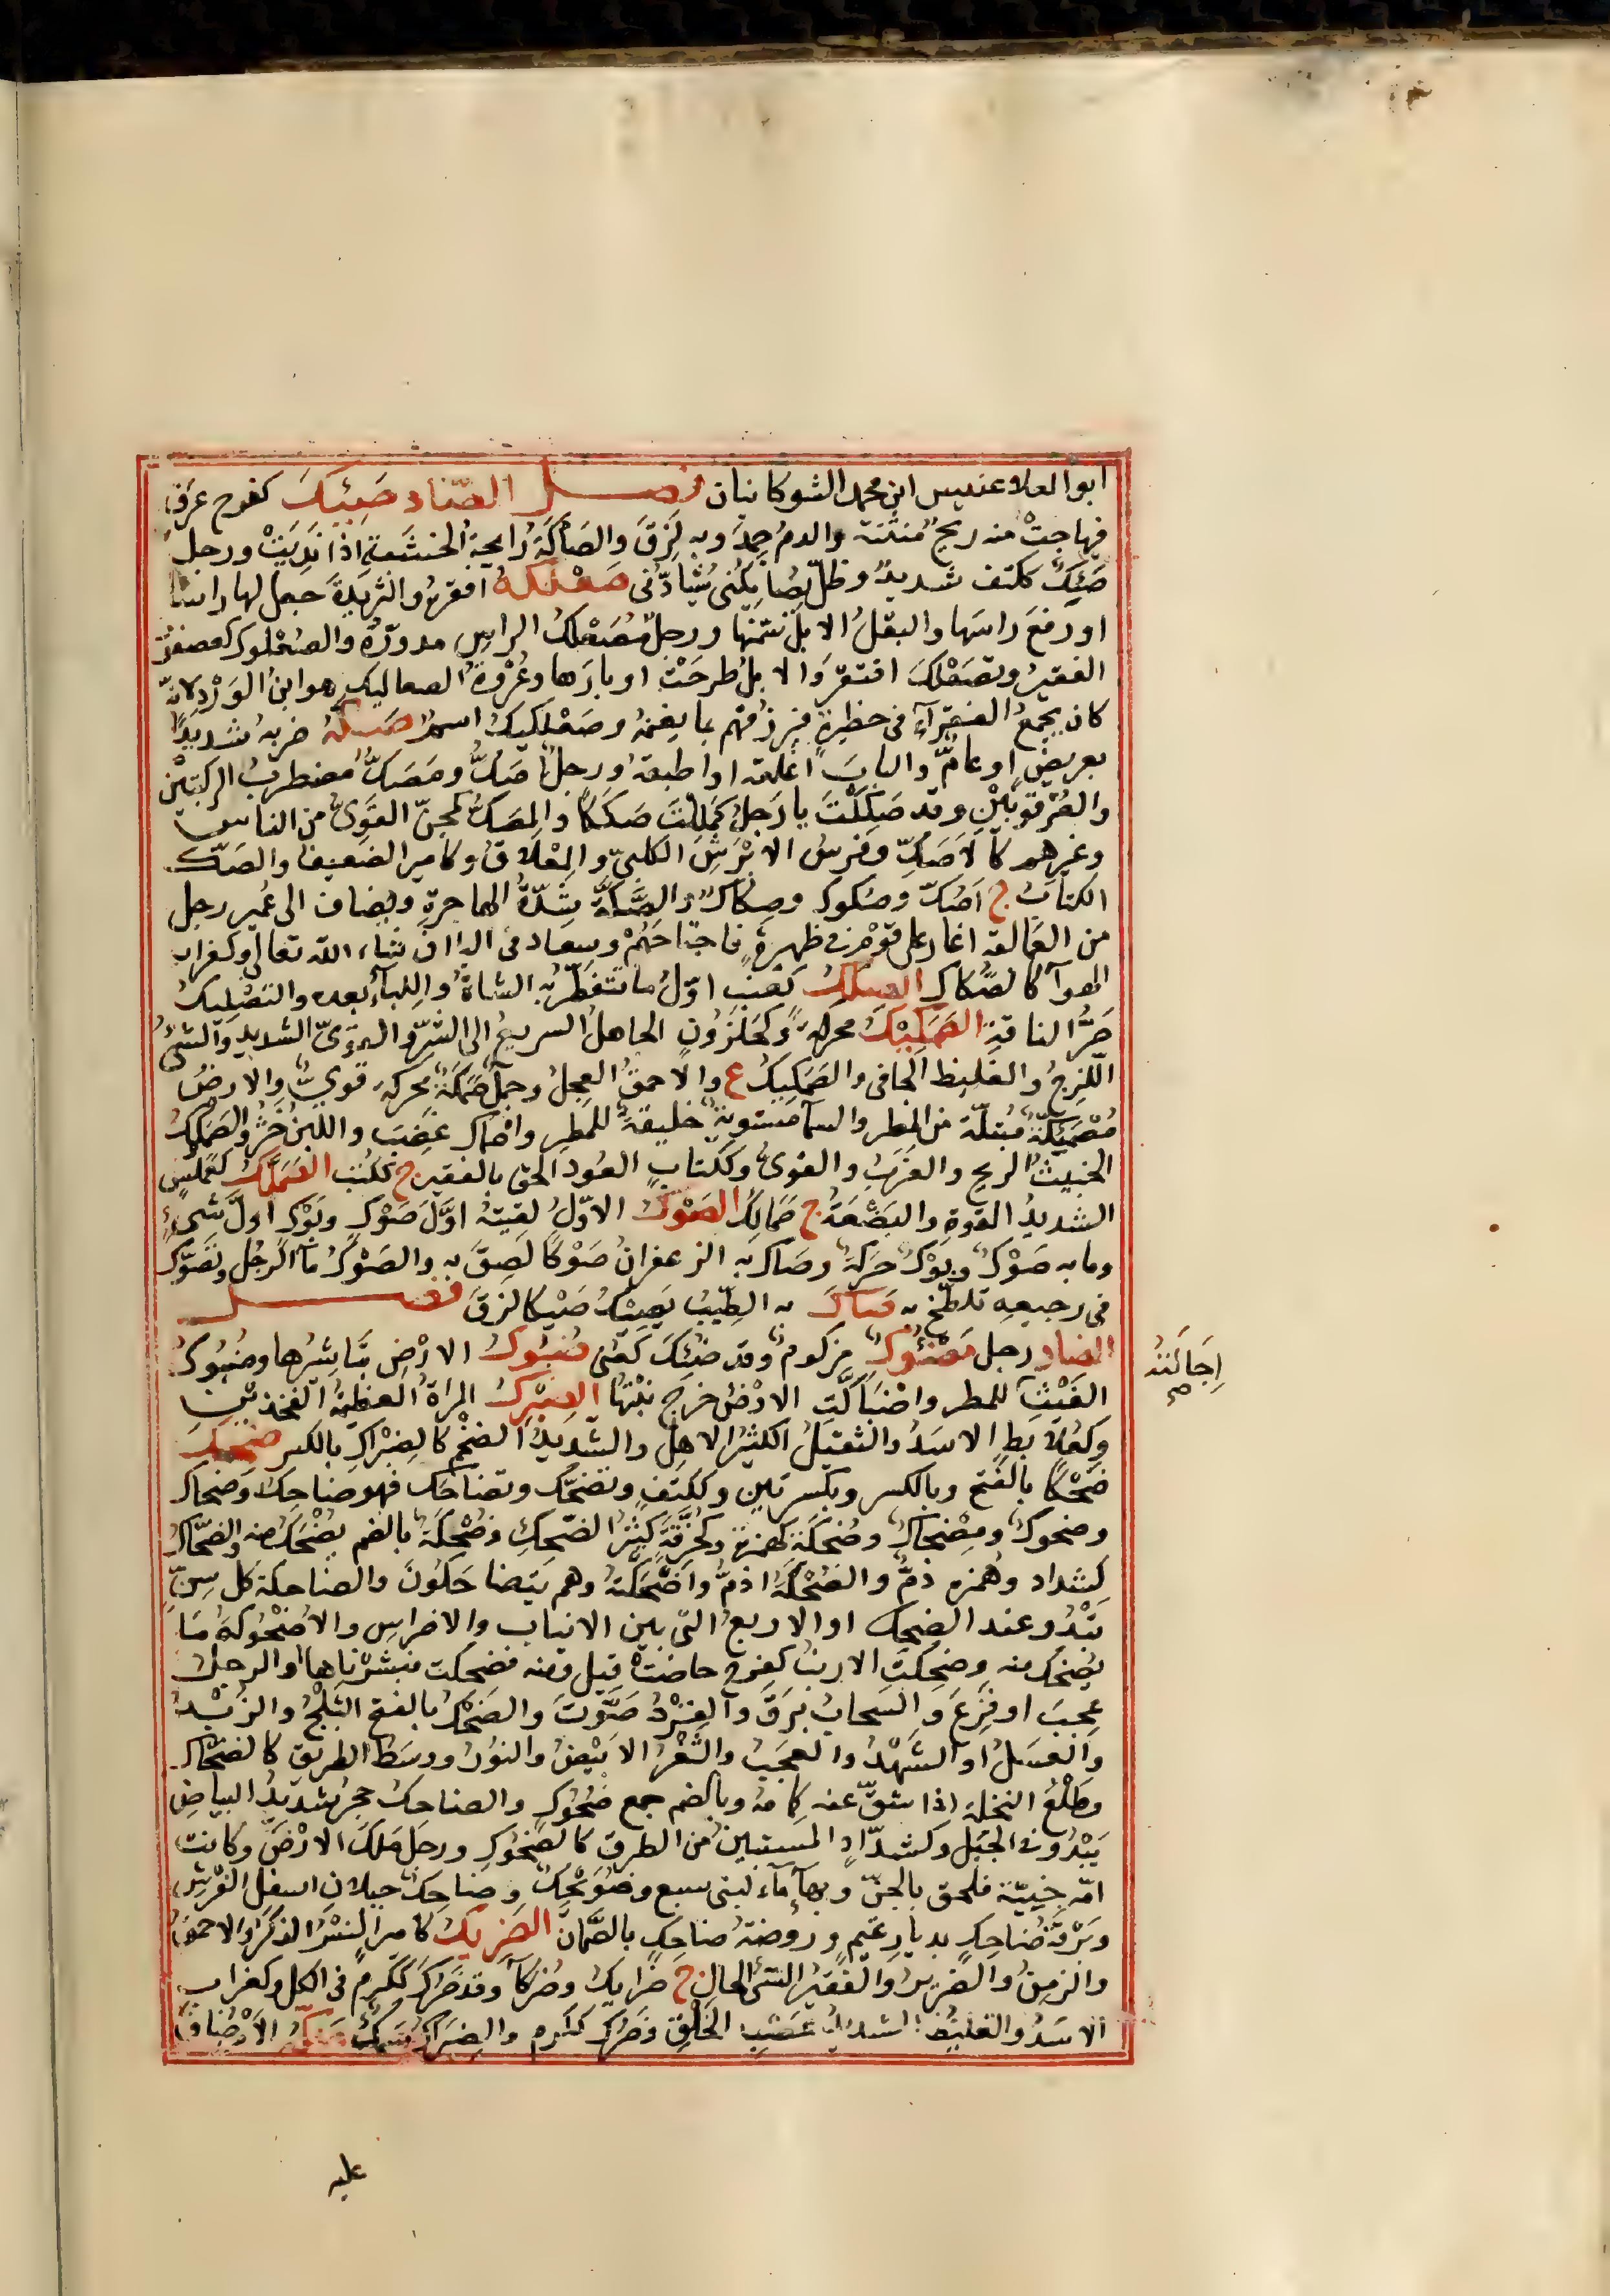 ابوالعلاء عنبس ابن محمد الشوكانيان فصل الصّاد صَئِكَ كفرح عَرِقَ
فهاجتْ منه ريحٌ منتنة والدمُ جمد وبه لَزِقَ والصَأكَةُ رايحة الخشبة اذا نديتْ ورجل
صَئِكٌ ككتف شديدٌ وظلّ يُصايكنى يُشادّنى صعلكه افقره والثريدةَ جعل لها راسا
او رفع راسها والبقلُ الابلَ سَمَّنها ورجلٌ مُصَعْلَكُ الراسِ مدوّره والصعلوك كعصفور
الفقير وتصعلك افتقر والابلُ طرحَتْ اوبارها وعُرْوَةُ الصعاليكِ هو ابنُ الوَرْدِ لانّه
كان يجمع الفقرآءَ فى حظيرةٍ فيرزقهم بما يغنمه وصعلكيك اسم صكه ضربه شديدًا
بعريضٍ او عامٌّ والبابَ اغلقه او اطبقه ورجلٌ اصكُّ ومِصَكٌّ مضطربُ الركبتين
والعُرْقوبَيْنِ وقد صَكِكْتَ يا رَجلُ كمَلِلْتَ صَكَكًا والمِصَكُّ كمجنّ القَوىُّ من الناس
وغيرهم كالاصكّ وفرسُ الابْرَشِ الكلبىّ والمِغْلاقُ وكامير الضعيف والصَكّ
الكتابُ ج اصُكّ وصُكوك وصِكاك والصَكّةُ شِدّةُ الهاجرةِ ويضاف الى عُمَىٍّ رجل
من العمالقة اغار على قوْمٍ فى ظهيرةٍ فاجتاحَهُمْ ويعاد فى اليا ان شاء الله تعالى وكغراب
الهوآ كالصُكاك الصلك كعنب اوّلُ ما تتفطّر به الشاةُ واللِّبَأُ بعده والتصليك
صَرُّ الناقةِ الصمكيك محركة وكحَلَزُونٍ الجاهلُ السريع الى الشرّ والقوىّ الشديد والشئ
اللَّزِجُ والغليظ الجافى والصَمكيك ع والاحمقُ العجِلُ وجملٌ صَمَكَةٌ محركة قوىٌّ والارضُ
مُصْمَئِكّة مُبتلّة من المطر والسمآ مستوية خليقةٌ للمطر واصماك غضِبَ واللبنُ خثُر والصَمَكْمك
الخبيثُ الريحِ والعَزَبُ والقوىُّ وككتابٍ العود الحق بالفقير ج ككُتب الصَمَلَّك كعملّسٍ
الشديدُ القوةِ والبَضْعَةُ ج صَمالِك الصَوْك الاوّلُ لقيتهُ اوّلَ صَوْكٍ وبَوْكٍ اولَ شئٍ
وما به صَوْكٌ وبوْكٌ حَرَكَةٌ وصاك به الزعفرانُ صَوْكًا لصِقَ به والصوْكُ مآ الرجُلِ وتصَوّك
فى رجيعه تلطّخ به صاك به الطِيبُ يَصِيكُ صَيْكا لزقَ فصل
الضاد رجل مضئوك مزكوم وقد ضُئِكَ كعُنى ضُبُوك الارضِ تباشرها وضُبُوكُ
الغَيْثِ للمطر واضْبأَكّتِ الارْضُ خرج نَبْتها الضبرك المراة العظيمة الفخذين
وكعُلابطٍ الاسَدُ والثقيلُ الكثيرُ الاهلِ والشديدُ الضخْم كالضِبْراكِ بالكسر ضحك
ضحكًا بالفتح وبالكسر وبكسرتين وككتف وتضحّك وتضاحك فهو ضاحك وضحاك
وضحوك ومضحاك وضحكة كهمزة وكحُزُقّة كثيرُ الضحك وضُحْكة بالضم يُضْحَك منه والضحّاك
كشداد وهمزه ذمٌّ والضُحْكَة اذمُّ واضْحَكَهُ وهم يتضاحكونَ والضاحكة كل سِنٍّ
تَبْدُو عند الضحك او الاربعُ التى بين الانياب والاضراس والاضحوكة مَا
يُضحَك منه وضحِكَتِ الارنبُ كفرح حاضتْ قيل ومنه فضحكت فبشّرناها والرجلُ
عجِبَ او فَزِعَ والسحابُ بَرَقَ والقِرْدُ صَوّتَ والضَحْكُ بالفتح الثلجُ والزُبْدُ
والعسَلُ او الشَهْدُ والعجَبُ والثَغْرُ الابْيضُ والنَوْرُ ووسَط الطريق كالضحّاك
وطَلْعُ النخلة اذا انشقّ عنه كِمامُه وبالضم جمع ضَحُوكٍ والضاحك حجرٌ شديدُ البياضِ
يَبْدُو فى الجبَل وكشدّادٍ المستبينُ من الطرق كالضَحُوكِ ورجل مَلَك الارْضَ وكانت
امّه جِنيّة فلحق بالجنّ وبهآ مآء لبنى سبع وضُوَيْحكٌ وضاحكٌ جبلانِ اسفل الفَرْشِ
وبَرْقة ضاحِكٍ بديارِ تميم وروضة ضاحكٍ بالصَمّانِ الضريك كامير النسْرُ الذكَرُ والاحمَقُ
والزمِنُ والضرير والفقيرُ السئ الحالِ ج ضرايك وضُركآ وقد ضَرُكَ ككَرُمَ فى الكل وكغراب
الاسَدُ والغليظُ الشديدُ عصَبِ الخَلْقِ وضرُك ككرم والضِراكُ سَمَكٌ ضكّ الامْرُ ضاقَ
اِجَالَتُه
صح
عليه